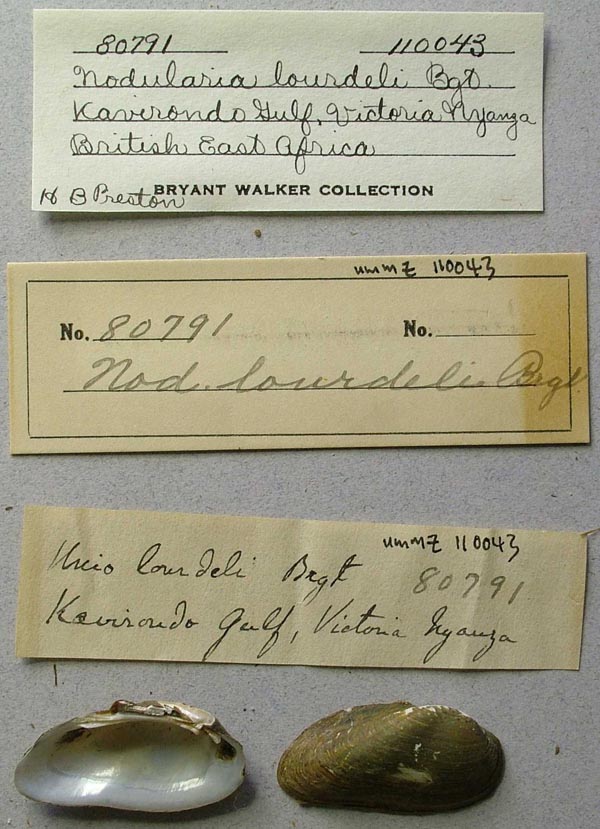 80791 110043
Nodularia lourdeli Bgt.
Kavirondo Gulf, Victoria Nyanza
British East Africa
H B Preston BRYANT WALKER COLLECTION
ummz 110043
No. 80791 No.
Nod. lourdeli Brgt.
ummz 110043
Unio lourdeli Brgt 80791
Kavirondo Gulf, Victoria Nyanza